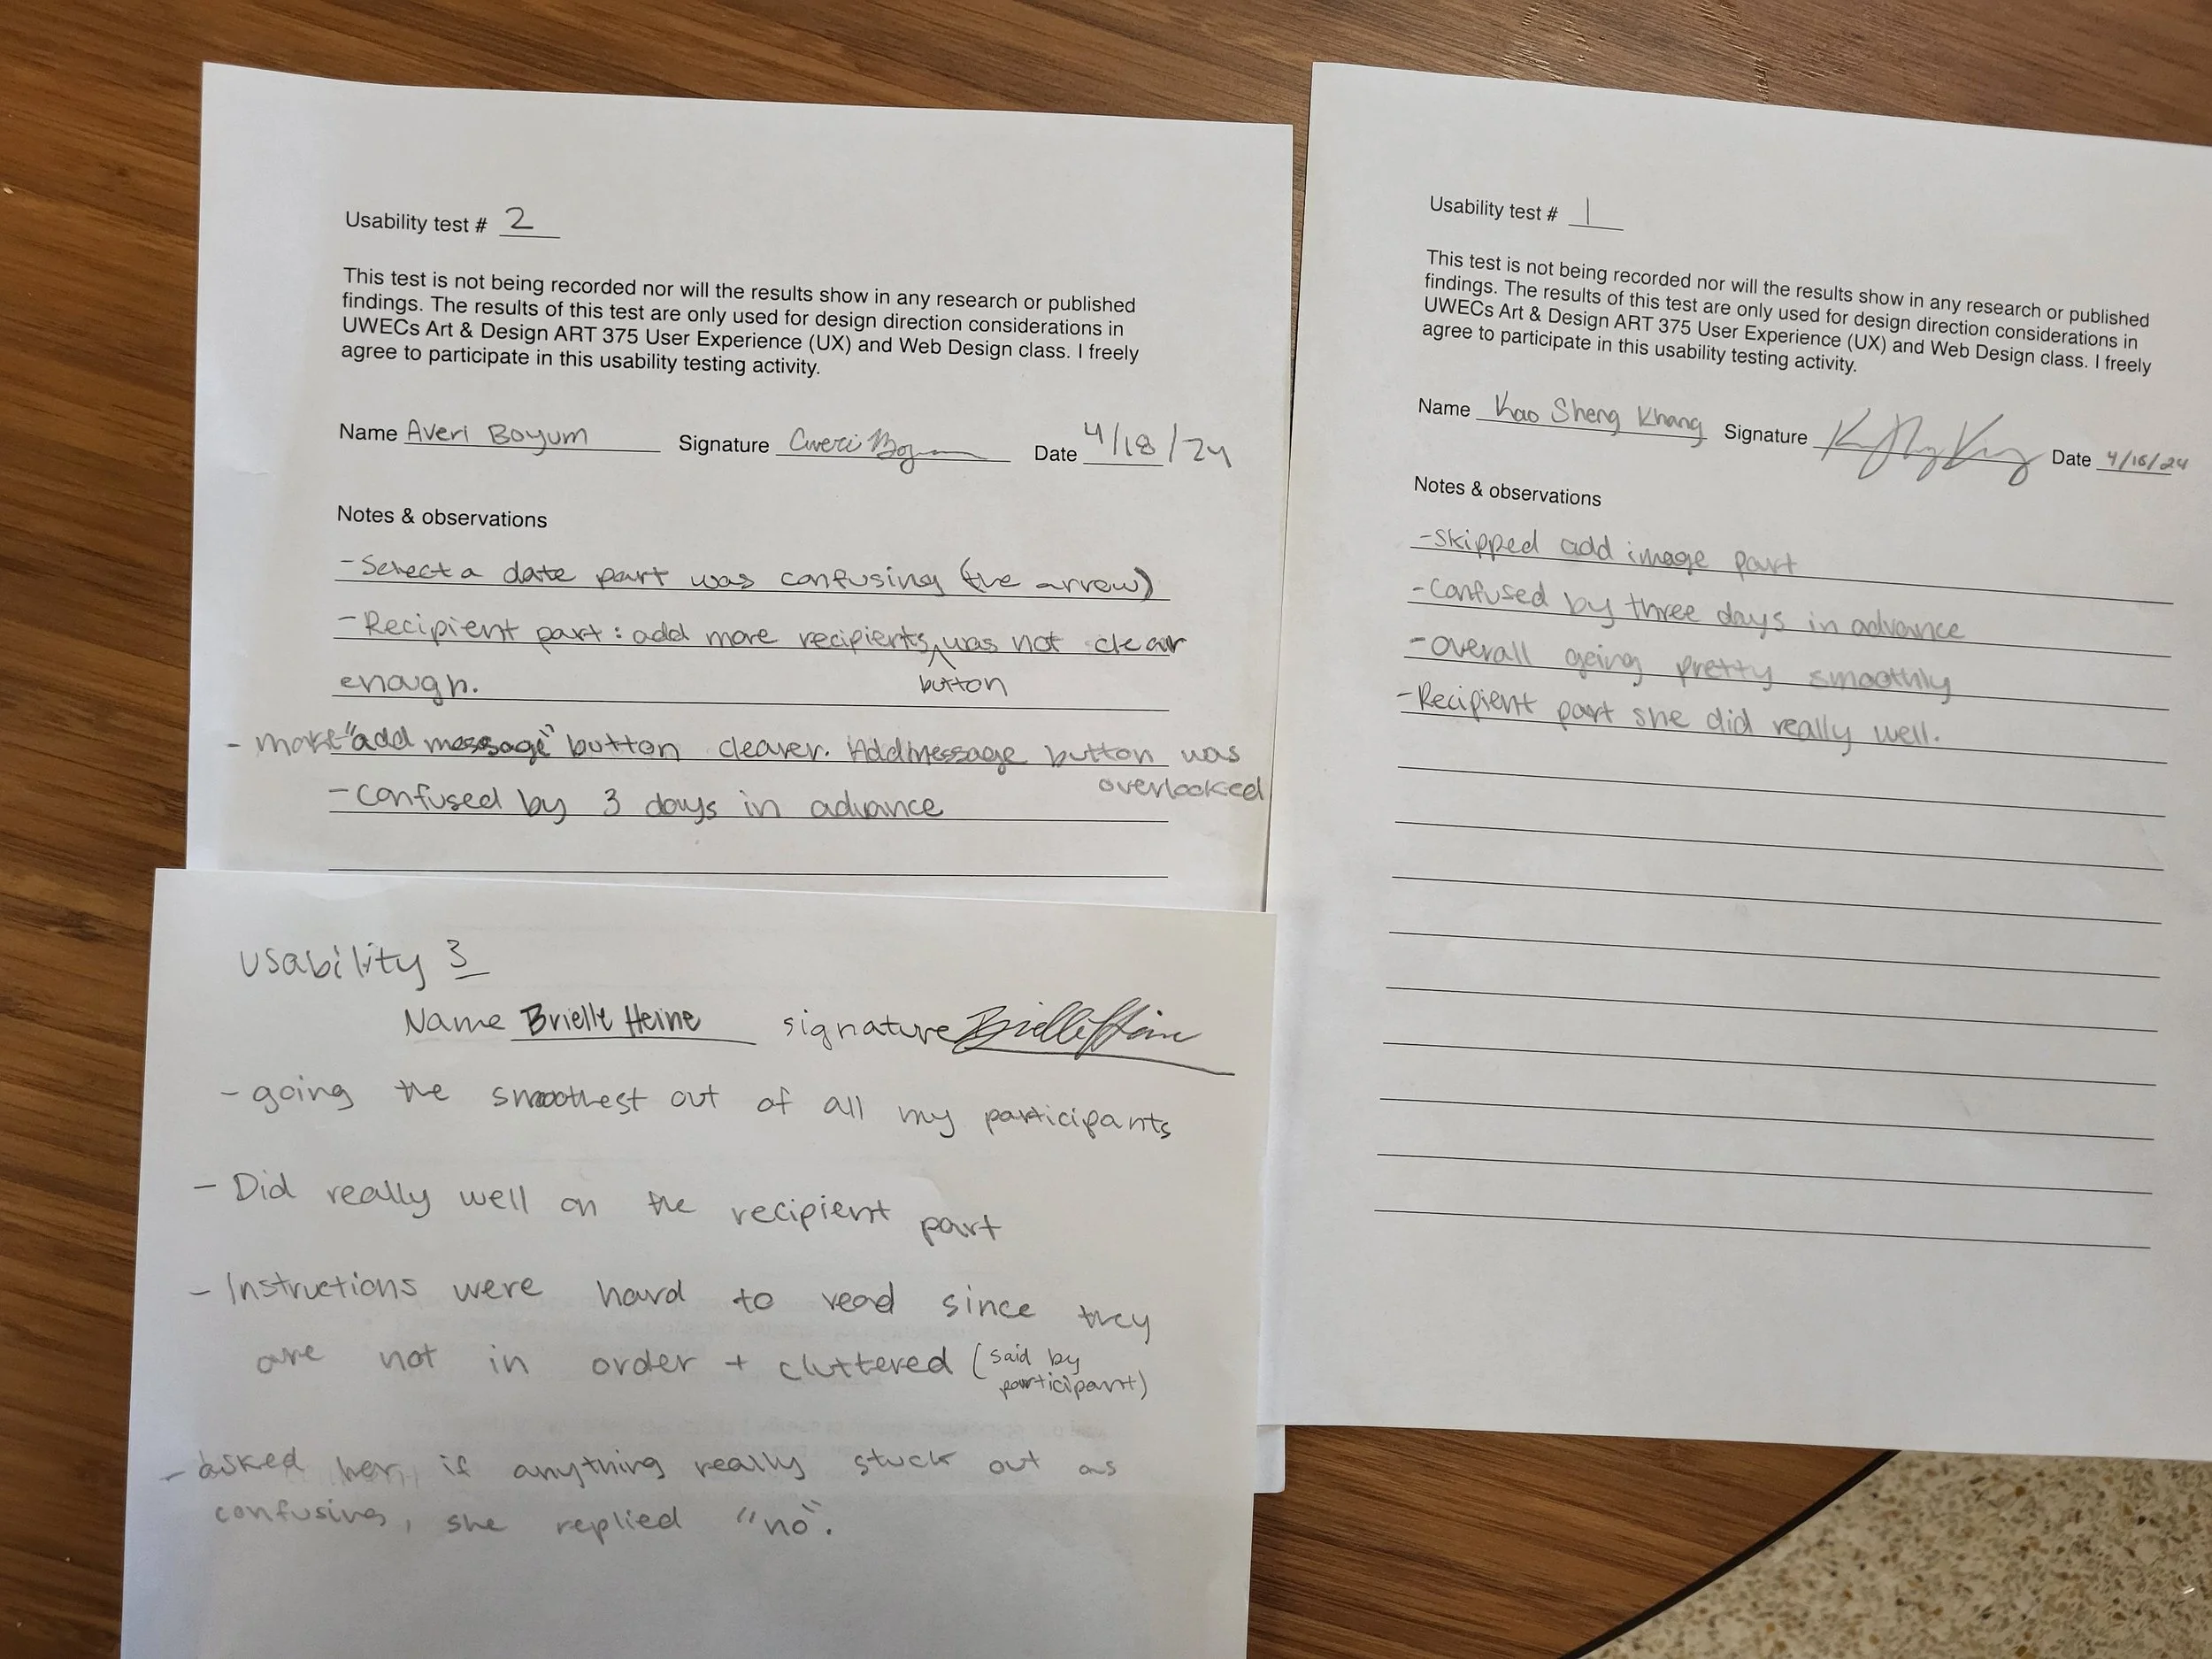 Usability test # 2
This test is not being recorded nor will the results show in any research or published
findings. The results of this test are only used for design direction considerations in
UWECs Art & Design ART 375 User Experience (UX) and Web Design class. I freely
agree to participate in this usability testing activity.
Name Averi Boyum Signature Averi Date 4/18/24
Notes & observations
-Select a date part was confusing (the arrow)
-Recipient part: add more recipients ^ was not clear
button
enough.
- make "add message" button clearer. Add message button was
overlooked
-Confused by 3 days in advance
Usability test # 1
This test is not being recorded nor will the results show in any research or published
findings. The results of this test are only used for design direction considerations in
UWECs Art & Design ART 375 User Experience (UX) and Web Design class. I freely
agree to participate in this usability testing activity.
Name Kao Sheng Khang Signature Date
Notes & observations
-skipped add image part
-confused by three days in advance
-overall going pretty smoothly
-Recipient part she did really well.
Usability 3
Name Brielle Heine signature Brielle Heine
- going the smoothest out of all my participants
- Did really well on the recipient part
- Instructions were hard to read since they
are not in order + cluttered (said by
participant)
- asked her, if anything really stuck out as
confusing, she replied "no".